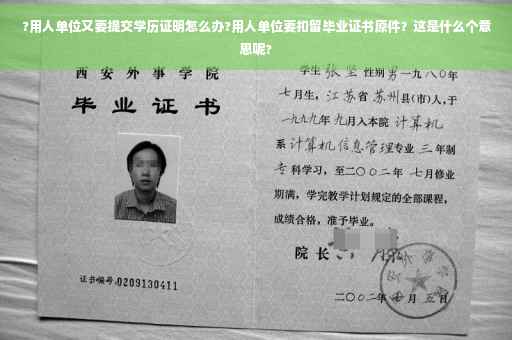 ?用人单位又要提交学历证明怎么办?用人单位要扣留毕业证书原件？这是什么个意
思呢?
西安外事学院
毕业证书
证书编号:0209130411
学生 张 坚 性别 男 一九八〇年
七月生，江苏省 苏州县(市)人，于
一九九九年 九月入本院 计算机
系 计算机信息管理专业 三 年制
专 科学习，至二〇〇二年 七月修业
期满，学完教学计划规定的全部课程，
成绩合格，准予毕业。
院 长
二〇〇二年 七 月 五 日